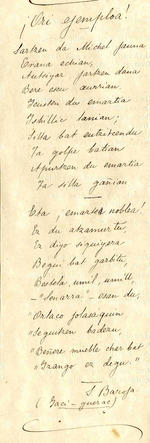 ¡Ori ejemploa!
Sartzen da Michel jauna
Erana echian,
Autsiyar jartzen dana
Bere esei aurrian.
Ikusten du emaztia
Ichillic lanian;
Silla bat
Ta golpe batian
Apurtzen du emaztia
Ta silla gañian
Eta, ¡emaztea noblea!
Ez du atzamurtu
Ez diyo siquiyera
Begui bat garbitu,
Bestela, umil, umill,
—"Senarra"— esan du,
"Ortaco jolasaquin
"Seguitzen badezu,
"Beñere mueble char bat
"Izango ez degu."
S. Baroja